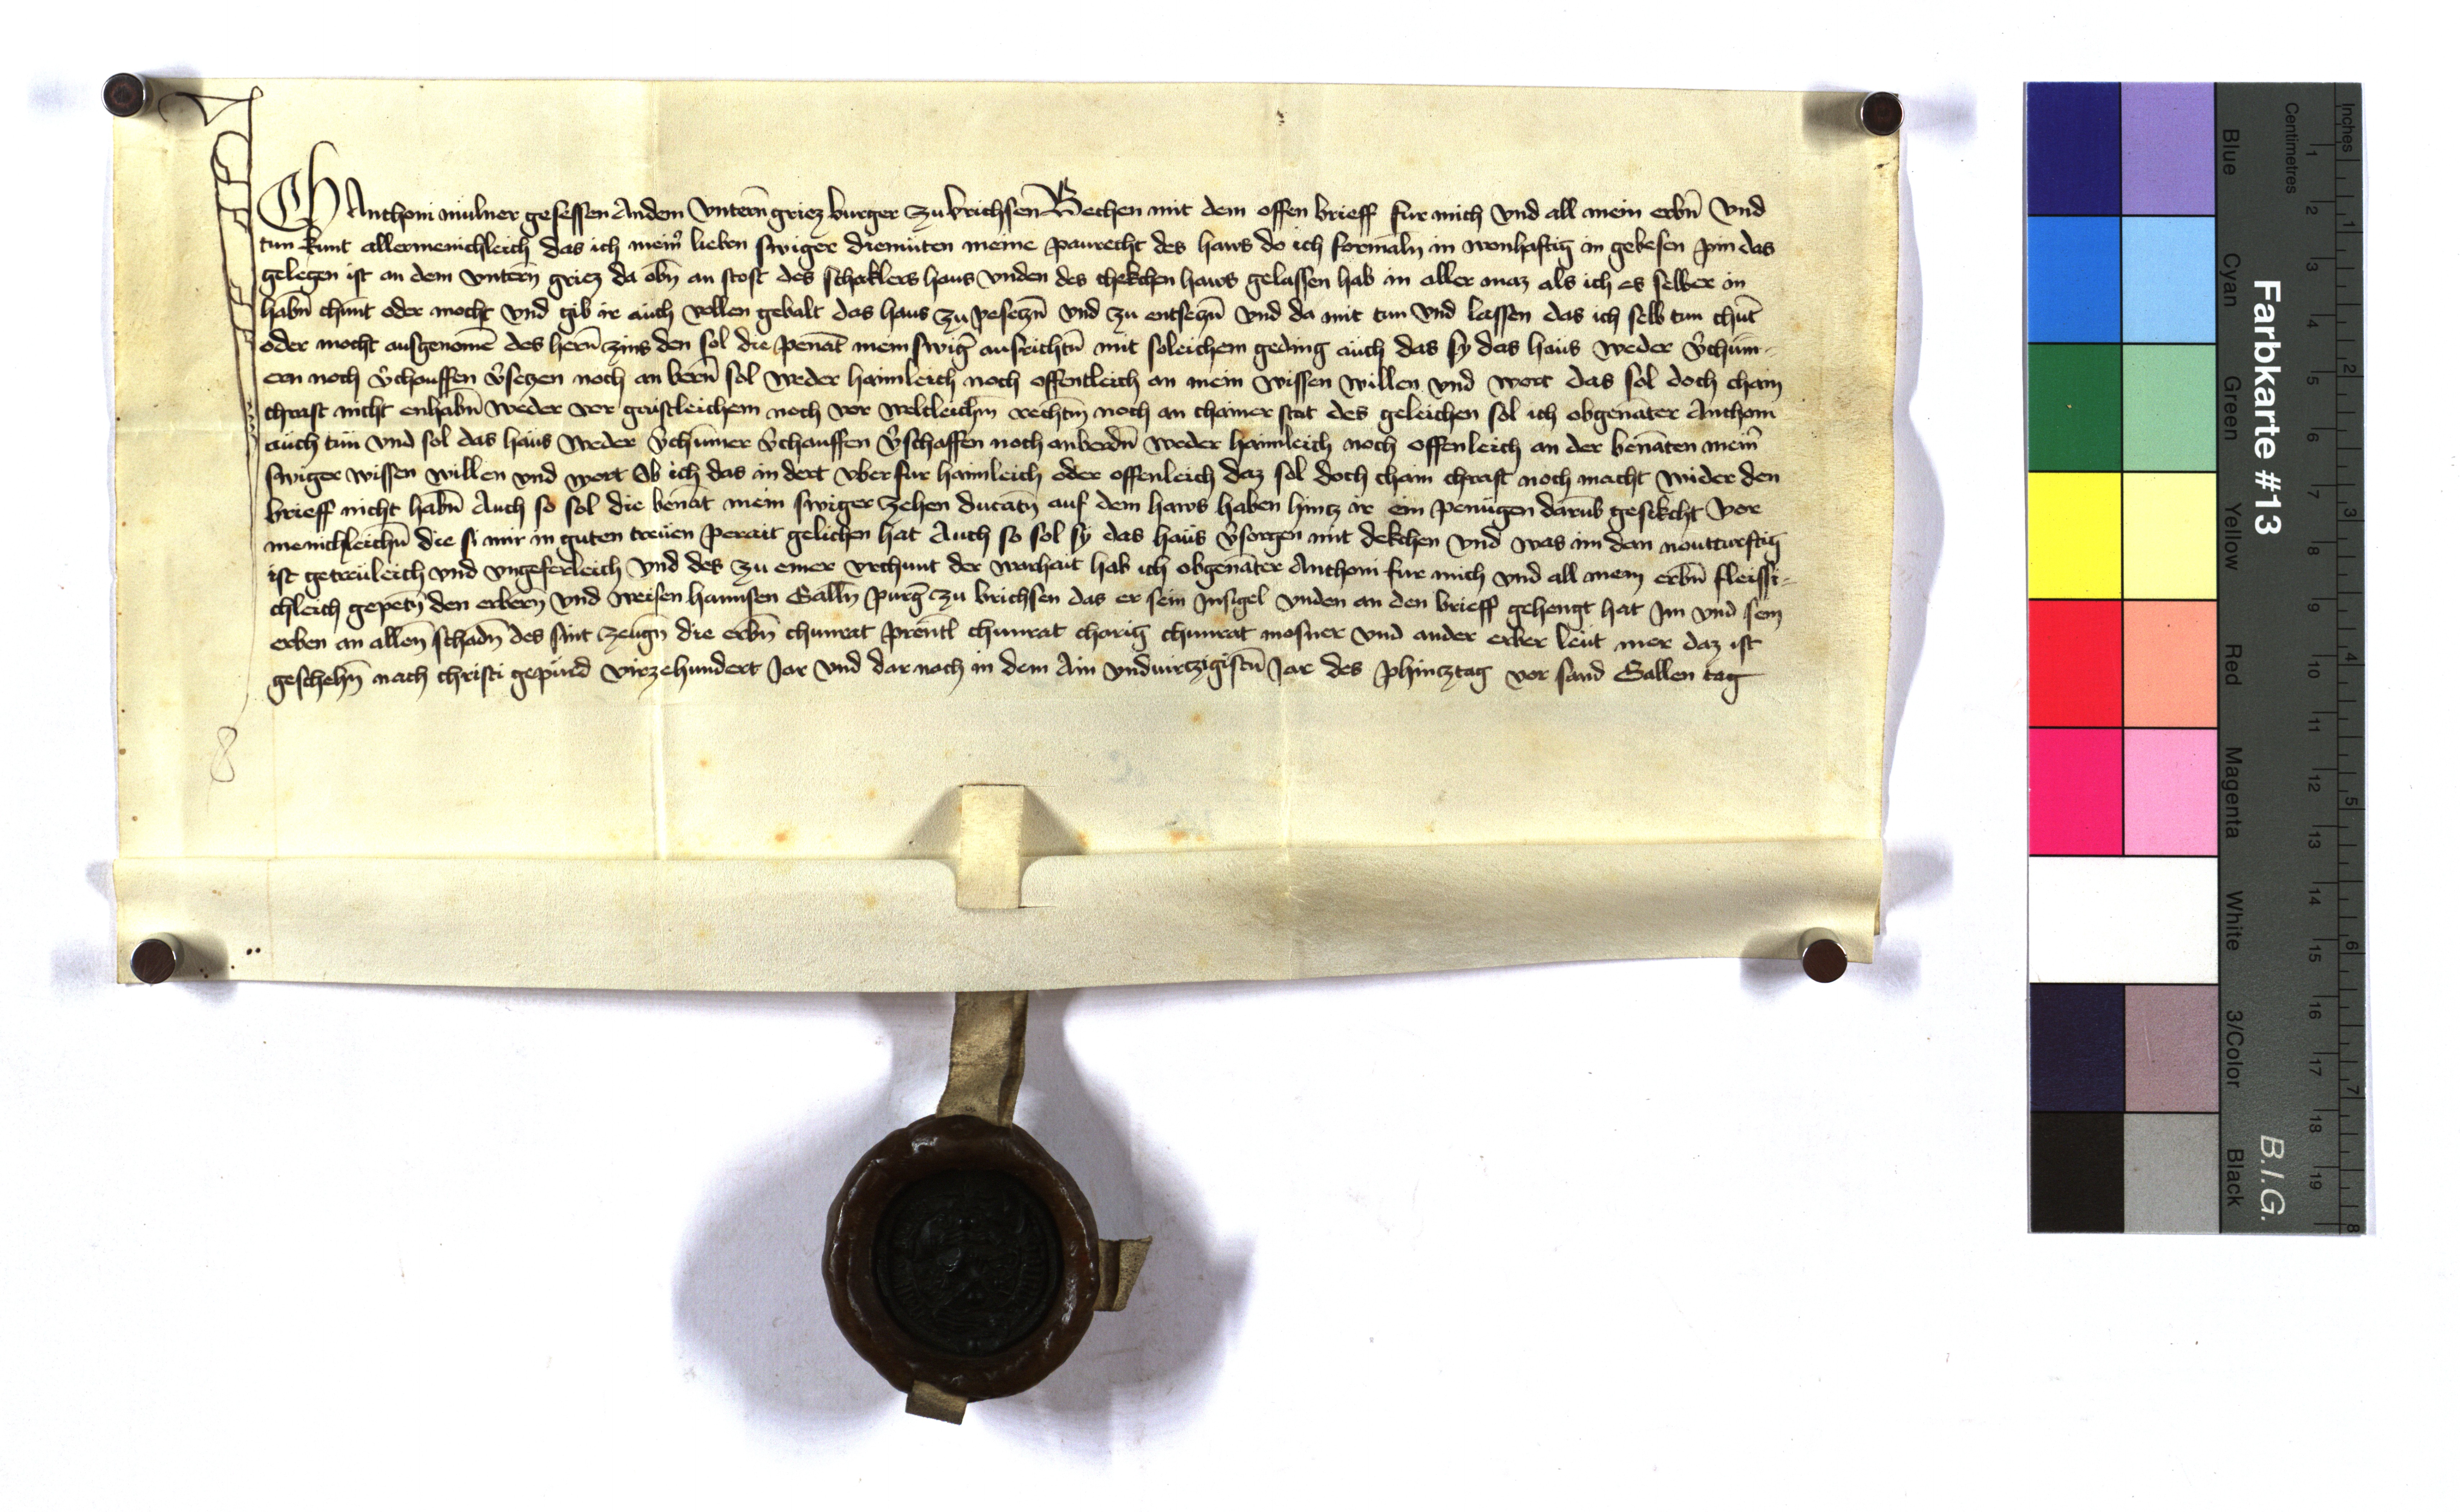 ICH Anthoni mulner gesessen An dem Vntern̄ griez burger zu brichsen Vechen mit dem offen brieff fur mich vnd all mein erbn̄ Vnd
tun kunt allermenichleich das ich mein̄ lieben swiger diemuten meine paurecht des haws do ich formaln in wonhaftig in gebesen pin das
gelegen ist an dem vntern̄ griez da obn̄ an stost des schaklers haus vnden des chekchen haws gelassen hab in aller maz als ich es selber in
habn̄ chunt oder mocht vnd gib ir auch vollen gebalt das haus zu peseczn̄ vnd zu entseczn̄ vnd da mit tun vnd lassen das ich selb tun chūt
oder mocht ausgenomē des hern̄ zins den sol die penāt mein swiḡ ausrichtn̄ mit soleichem geding auch das sy das haus weder v̄chum-
ern noch v̄chauffen v̄seczen noch an bern̄ sol weder haimleich noch offentleich an mein wissen willen vnd wort das sol doch chain
chraft nicht enhabn̄ weder vor gaistleichem noch vor weltleichm̄ rechtn̄ noch an chainer stat des geleichen sol ich obgenāter Anthoni
auch tun vnd sol das haus weder v̄chumer v̄chauffen v̄schaffen noch anberdn̄ weder haimleich noch offenleich an der benāten mein̄
swiger wissen willen vnd wort Ob ich das in dert vberfur haimleich oder offenleich daz sol doch chain chraft noch macht wider den
brieff nicht habn̄ Auch so sol die benāt mein swiger zehen ducatn̄ auf dem haws haben hincz ir ein penugen darub̄ geschcht vor
menichleichn̄ die si mir in guten treuen perait gelichen hat Auch so sol sy das haus v̄sorgen mit dekchen vnd was im dem notturftig
ist getreuleich vnd vngeferleich vnd des zu einer vrchunt der warhait hab ich obgenāter Anthoni fur mich vnd all mein erbn̄ fleissi-
chleich gepetn̄ den erbern̄ vnd weisen hannsen Galln̄ purḡ czu brichsen das er sein Insigel vnden an den brieff gehengt hat Im vnd sein
erben an allen̄ schadn̄ des sint zeugn̄ die erbn̄ chunrat prentl chunrat charig chunrat mosner vnd ander erber leut mer daz ist
geschehn̄ nach christi gepurd virzehundert Jar vnd dar nach in dem Ain vnduirczigistn̄ Jar des phincztag vor sand Gallen tag
8
Farbkarte #13
B.I.G.
Inches
Centimetres
Blue
Cyan
Green
Yellow
Red
Magenta
White
3/Color
Black
1 2 3 4 5 6 7 8 9 10 11 12 13 14 15 16 17 18 19
1 2 3 4 5 6 7 8